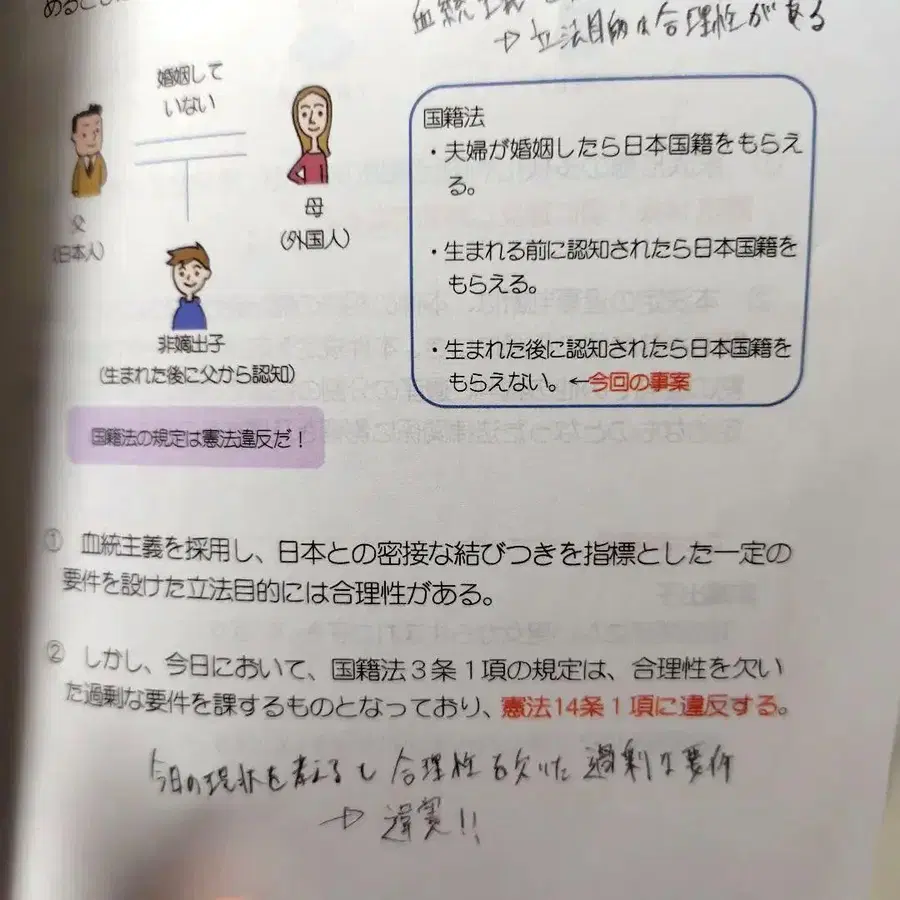 めるこ
血統主義
→ 立法目的は合理性がある
婚姻して
いない
父
(日本人)
母
(外国人)
非嫡出子
(生まれた後に父から認知)
国籍法の規定は憲法違反だ！
国籍法
・夫婦が婚姻したら日本国籍をもらえ
る。
・生まれる前に認知されたら日本国籍を
もらえる。
・生まれた後に認知されたら日本国籍を
もらえない。←今回の事案
① 血統主義を採用し、日本との密接な結びつきを指標とした一定の
要件を設けた立法目的には合理性がある。
② しかし、今日において、国籍法３条１項の規定は、合理性を欠い
た過剰な要件を課するものとなっており、憲法14条１項に違反する。
今日の現状を考えるも合理性を欠いた過剰な要件
→ 違憲!!